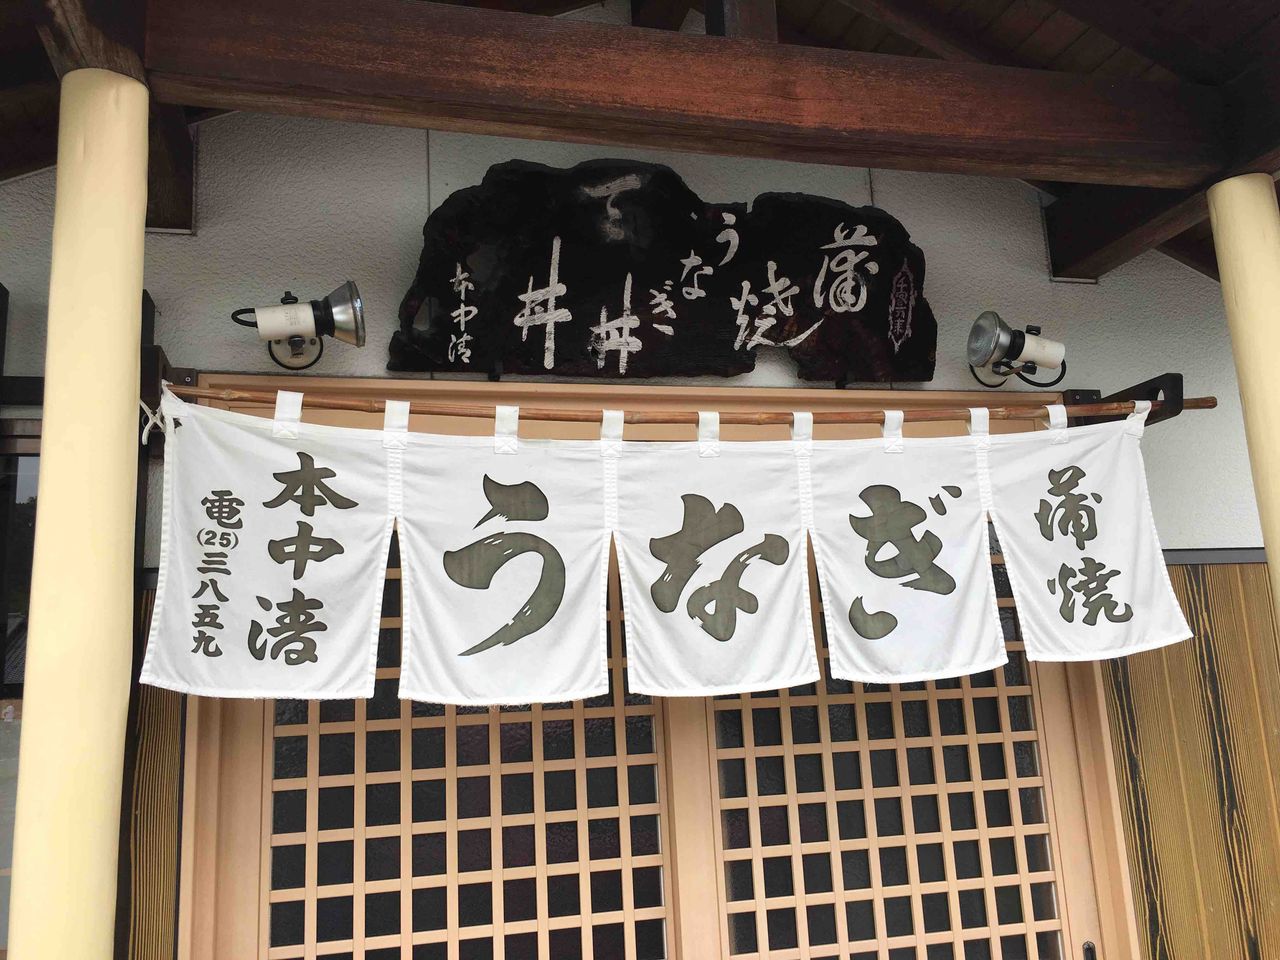 蒲焼
うなぎ
本中清
本中清
電(25)三八五九
うなぎ
蒲焼